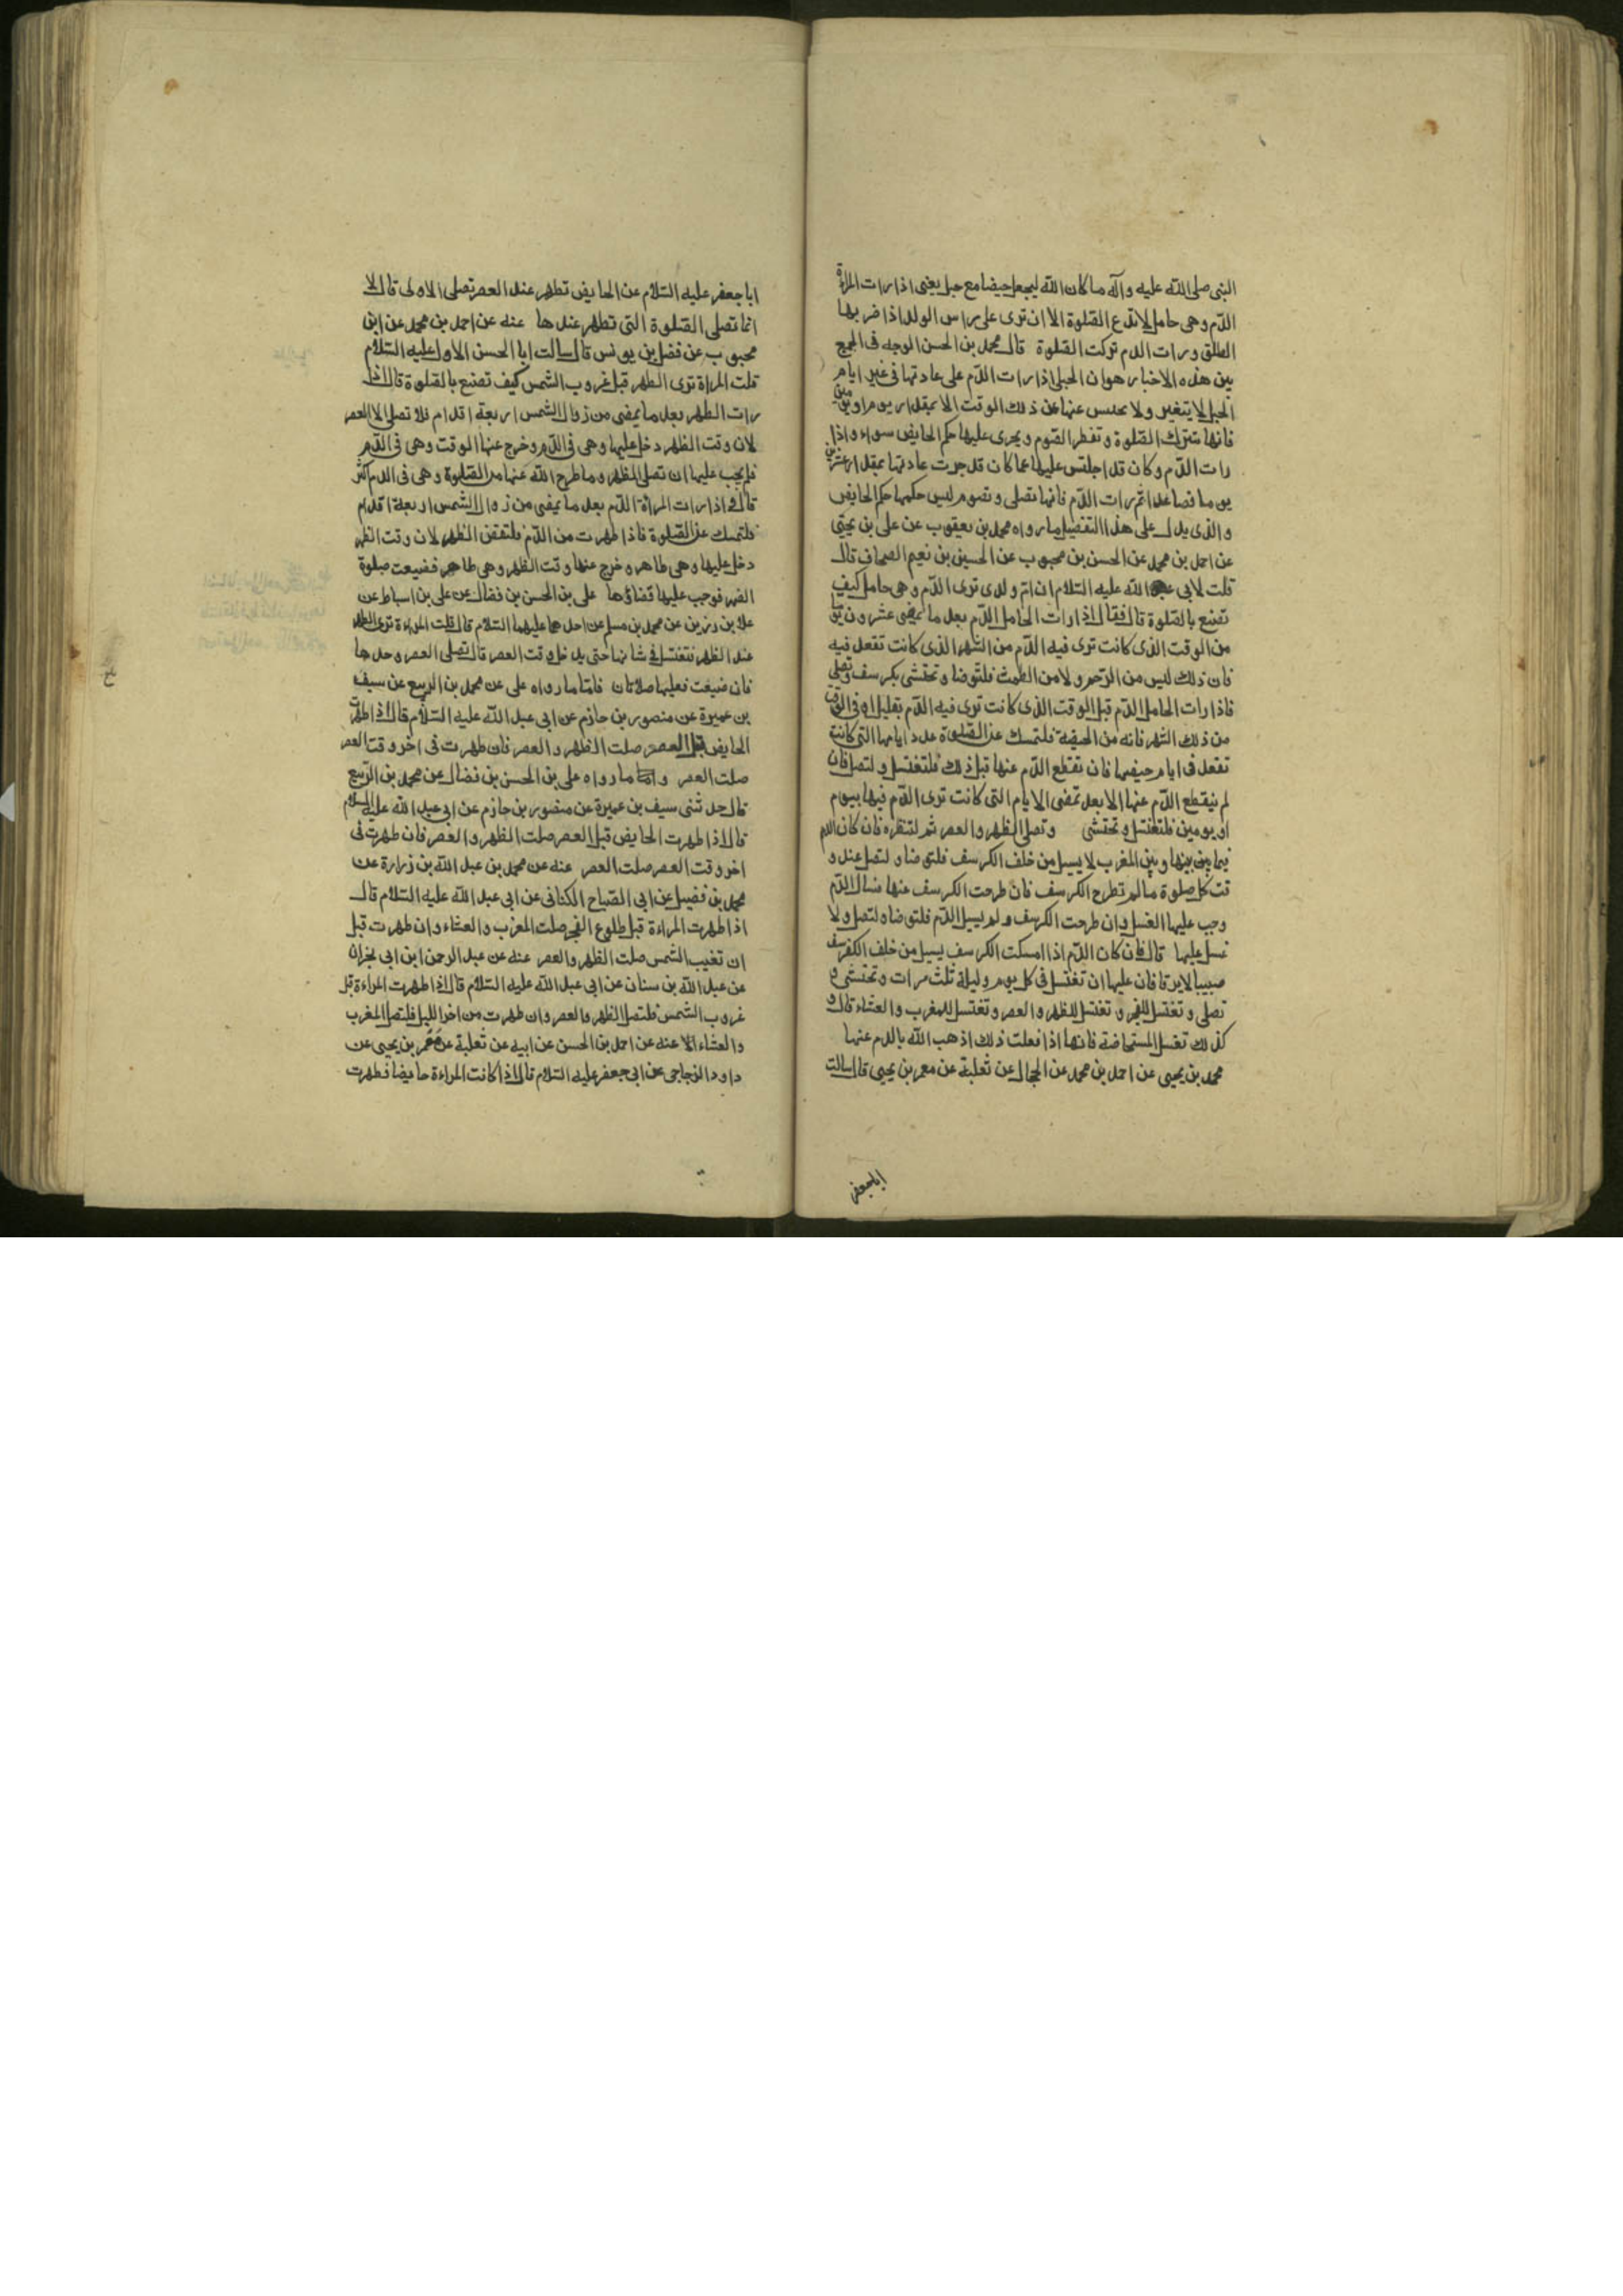 النبى صلى الله عليه وآله ما كان الله ليجعل حيضا مع حبل يعنى اذا رات المراة
الدّم وهى حامل لا تدع الصّلوة الا ان ترى على راس الولد اذا ضربها
الطلق ورات الدم تركت الصّلوة قال محمد بن الحسن الوجه فى الجمع
بين هذه الاخبار هو ان الحبلى اذا رات الدّم على عادتها فى غير ايام
الحبل لا يتغير ولا محتبس عنها عن ذلك الوقت الا بمقدار يوم او يومين
فانها تترك الصّلوة وتفطر الصّوم ويجرى عليها حكم الحايض سواء واذا
رات الدّم وكان قد احتبس عليها عما كان قد جرت عادتها بمقدار عشرين
يوما فصاعدا ثم رات الدّم فانها تصلى وتصوم ليس حكمها حكم الحايض
والذى يدل على هذا التفضيل ما رواه محمد بن يعقوب عن على بن يحيى
عن احمد بن محمد عن الحسن بن محبوب عن الحسين بن نعيم الصحاف قال
قلت لابى عبد الله عليه السّلام ان امّ ولدى ترى الدّم وهى حامل كيف
تصنع بالصّلوة قال فقال اذا رات الحامل الدّم بعد ما يمضى عشرون يوما
من الوقت الذى كانت ترى فيه الدّم من الشهر الذى كانت تقعد فيه
فان ذلك ليس من الرّحم ولا من الطمث فلتوضا وتحتشى بكرسف وتصلى
فاذا رات الحامل الدّم قبل الوقت الذى كانت ترى فيه الدّم بقليل او فى الوقت
من ذلك الشهر فانه من الحيضة فلتمسك عن الصّلوة عدد ايامها التى كانت
تقعد فى ايام حيضها فان نقطع الدّم عنها قبل ذلك فلتغتسل ولتصل فان
لم ينقطع الدّم عنها الا بعد تمضى الايام التى كانت ترى الدّم فيها بيوم
او يومين فلتغتسل وتحتشى وتصلى الظهر والعصر ثم لتنظره فان كان الدم
فيما بينها وبين المغرب لا يسيل من خلف الكرسف فلتوضا ولتصل عند و
قت كل صلوة ما لم تطرح الكرسف فان طرحت الكرسف عنها فسال الدّم
وجب عليها الغسل وان طرحت الكرسف ولم يسل الدّم فلتوضا ولتصل ولا
غسل عليها قال فان كان الدّم اذا امسكت الكرسف يسيل من خلف الكرسف
صبيبا لا يرقا فان عليها ان تغتسل فى كل يوم وليلة ثلث مرات وتحتشى و
تصلى وتغتسل للفجر وتغتسل للظهر والعصر وتغتسل للمغرب والعشاء قال و
كذلك تفعل المستحاضة فانها اذا فعلت ذلك اذهب الله بالدم عنها
محمد بن يحيى عن احمد بن محمد عن الحجال عن ثعلبة عن معمر بن يحيى قال سالت
اباجعفر
ابا جعفر عليه السّلام عن الحايض تطهر عند العصر تصلى الاولى قال لا
انما تصلى الصّلوة التى تطهر عندها عنه عن احمد بن محمد عن ابن
محبوب عن فضل بن يونس قال سالت ابا الحسن الاول عليه السّلام
قلت المراة ترى الطهر قبل غروب الشمس كيف تصنع بالصلوة قال اذا
رات الطهر بعد ما يمضى من زوال الشمس اربعة اقدام فلا تصلى الا العصر
لان وقت الظهر دخل عليها وهى فى الدّم وخرج عنها الوقت وهى فى الدّم
فلم يجب عليها ان تصلى الظهر وما طرح الله عنها من الصّلوة وهى فى الدم اكثر
قال واذا رات المراة الدّم بعد ما يمضى من زوال الشمس اربعة اقدام
فلتمسك عن الصّلوة فاذا طهرت من الدّم فلتقض الظهر لان وقت الظهر
دخل عليها وهى طاهر وخرج عنها وقت الظهر وهى طاهر فضيعت صلوة
الظهر فوجب عليها قضاؤها على بن الحسن بن فضال عن على بن اسباط عن
علا بن رزين عن محمد بن مسلم عن احدهما عليهما السّلام قال قلت المراءة ترى الطهر
عند الظهر فتغتسل فى شانها حتى يدخل وقت العصر قال تصلى العصر وحدها
فان ضيعت فعليها صلاتان فامّا ما رواه على عن محمد بن الربيع عن سيف
بن عميرة عن منصور بن حازم عن ابى عبد الله عليه السّلام قال اذا طهرت
الحايض قبل العصر صلت الظهر والعصر فان طهرت فى اخر وقت العصر
صلت العصر وامّا ما رواه على بن الحسن بن فضال عن محمد بن الرّبيع
قال حدثنى سيف بن عميرة عن منصور بن حازم عن ابى عبد الله عليه السلام
قال اذا طهرت الحايض قبل العصر صلت الظهر والعصر فان طهرت فى
اخر وقت العصر صلت العصر عنه عن محمد بن عبد الله بن زرارة عن
محمد بن فضيل عن ابى الصّباح الكنانى عن ابى عبد الله عليه السّلام قال
اذا طهرت المراءة قبل طلوع الفجر صلت المغرب والعشاء وان طهرت قبل
ان تغيب الشمس صلت الظهر والعصر عنه عن عبد الرحمن ابن ابى نجران
عن عبد الله بن سنان عن ابى عبد الله عليه السّلام قال اذا طهرت المراءة قبل
غروب الشمس فلتصل الظهر والعصر وان طهرت من اخر الليل فلتصل المغرب
والعشاء الا عنه عن احمد بن الحسن عن ابيه عن ثعلبة عن معمر بن يحيى عن
داود الزجاجى عن ابى جعفر عليه السّلام قال اذا كانت المراءة حايضا فطهرت